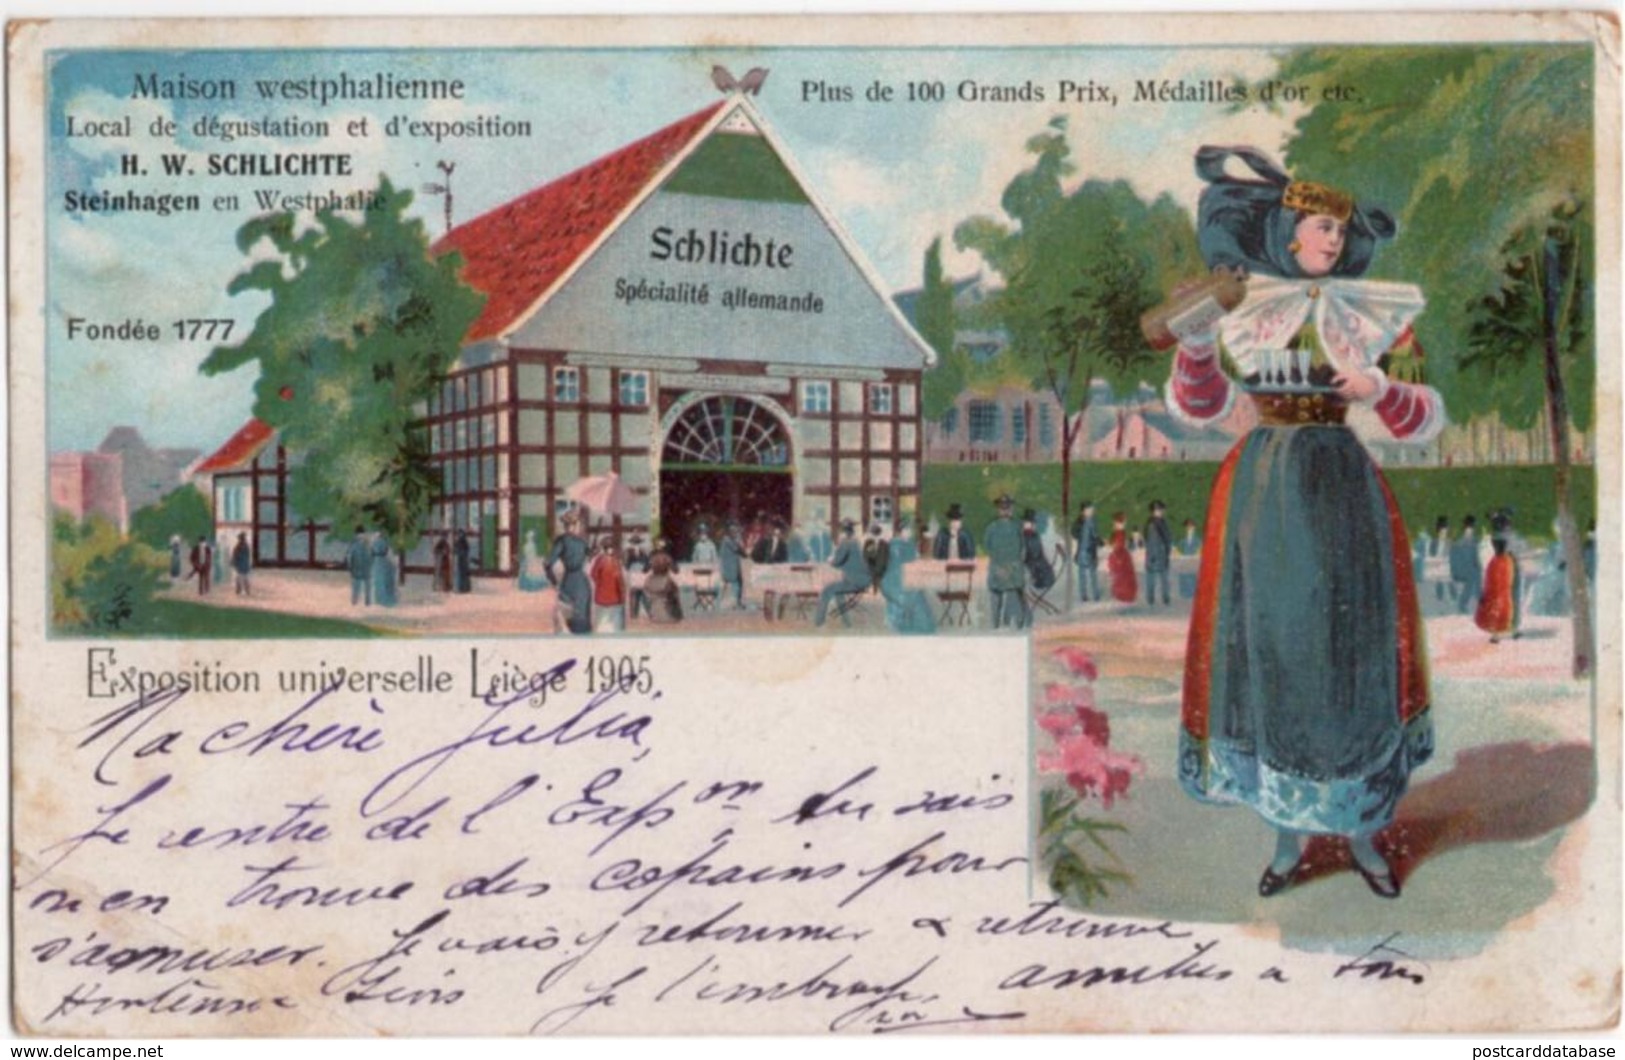 Maison westphalienne
Local de dégustation et d'exposition
H. W. SCHLICHTE
Steinhagen en Westphalie
Fondée 1777
Plus de 100 Grands Prix, Médailles d'or etc.
Schlichte
Spécialité allemande
Exposition universelle Liège 1905
Ma chère Julia,
Je rentre de l'Exp on, tu sais
on en trouve des copains pour
s'amuser. Je vais y retourner &
Je l'embrasse, amitiés à tous
www.delcampe.net
postcarddatabase